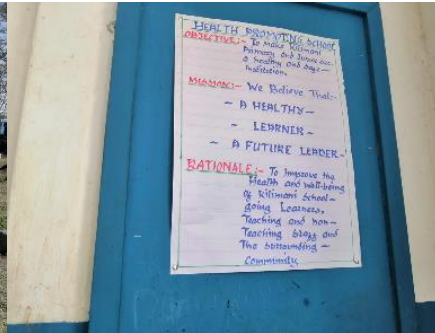 HEALTH PROMOTING SCHOOL
OBJECTIVE:- To make Kilimani
Primary and Junior Sec.
a healthy and safe
Institution.
MISSION:- We Believe That:-
- A HEALTHY -
- LEARNER -
- A FUTURE LEADER -
RATIONALE:- To Improve the
Health and well-being
of Kilimani School-
going Learners,
Teaching and non-
Teaching Staff and
The Surrounding -
Community